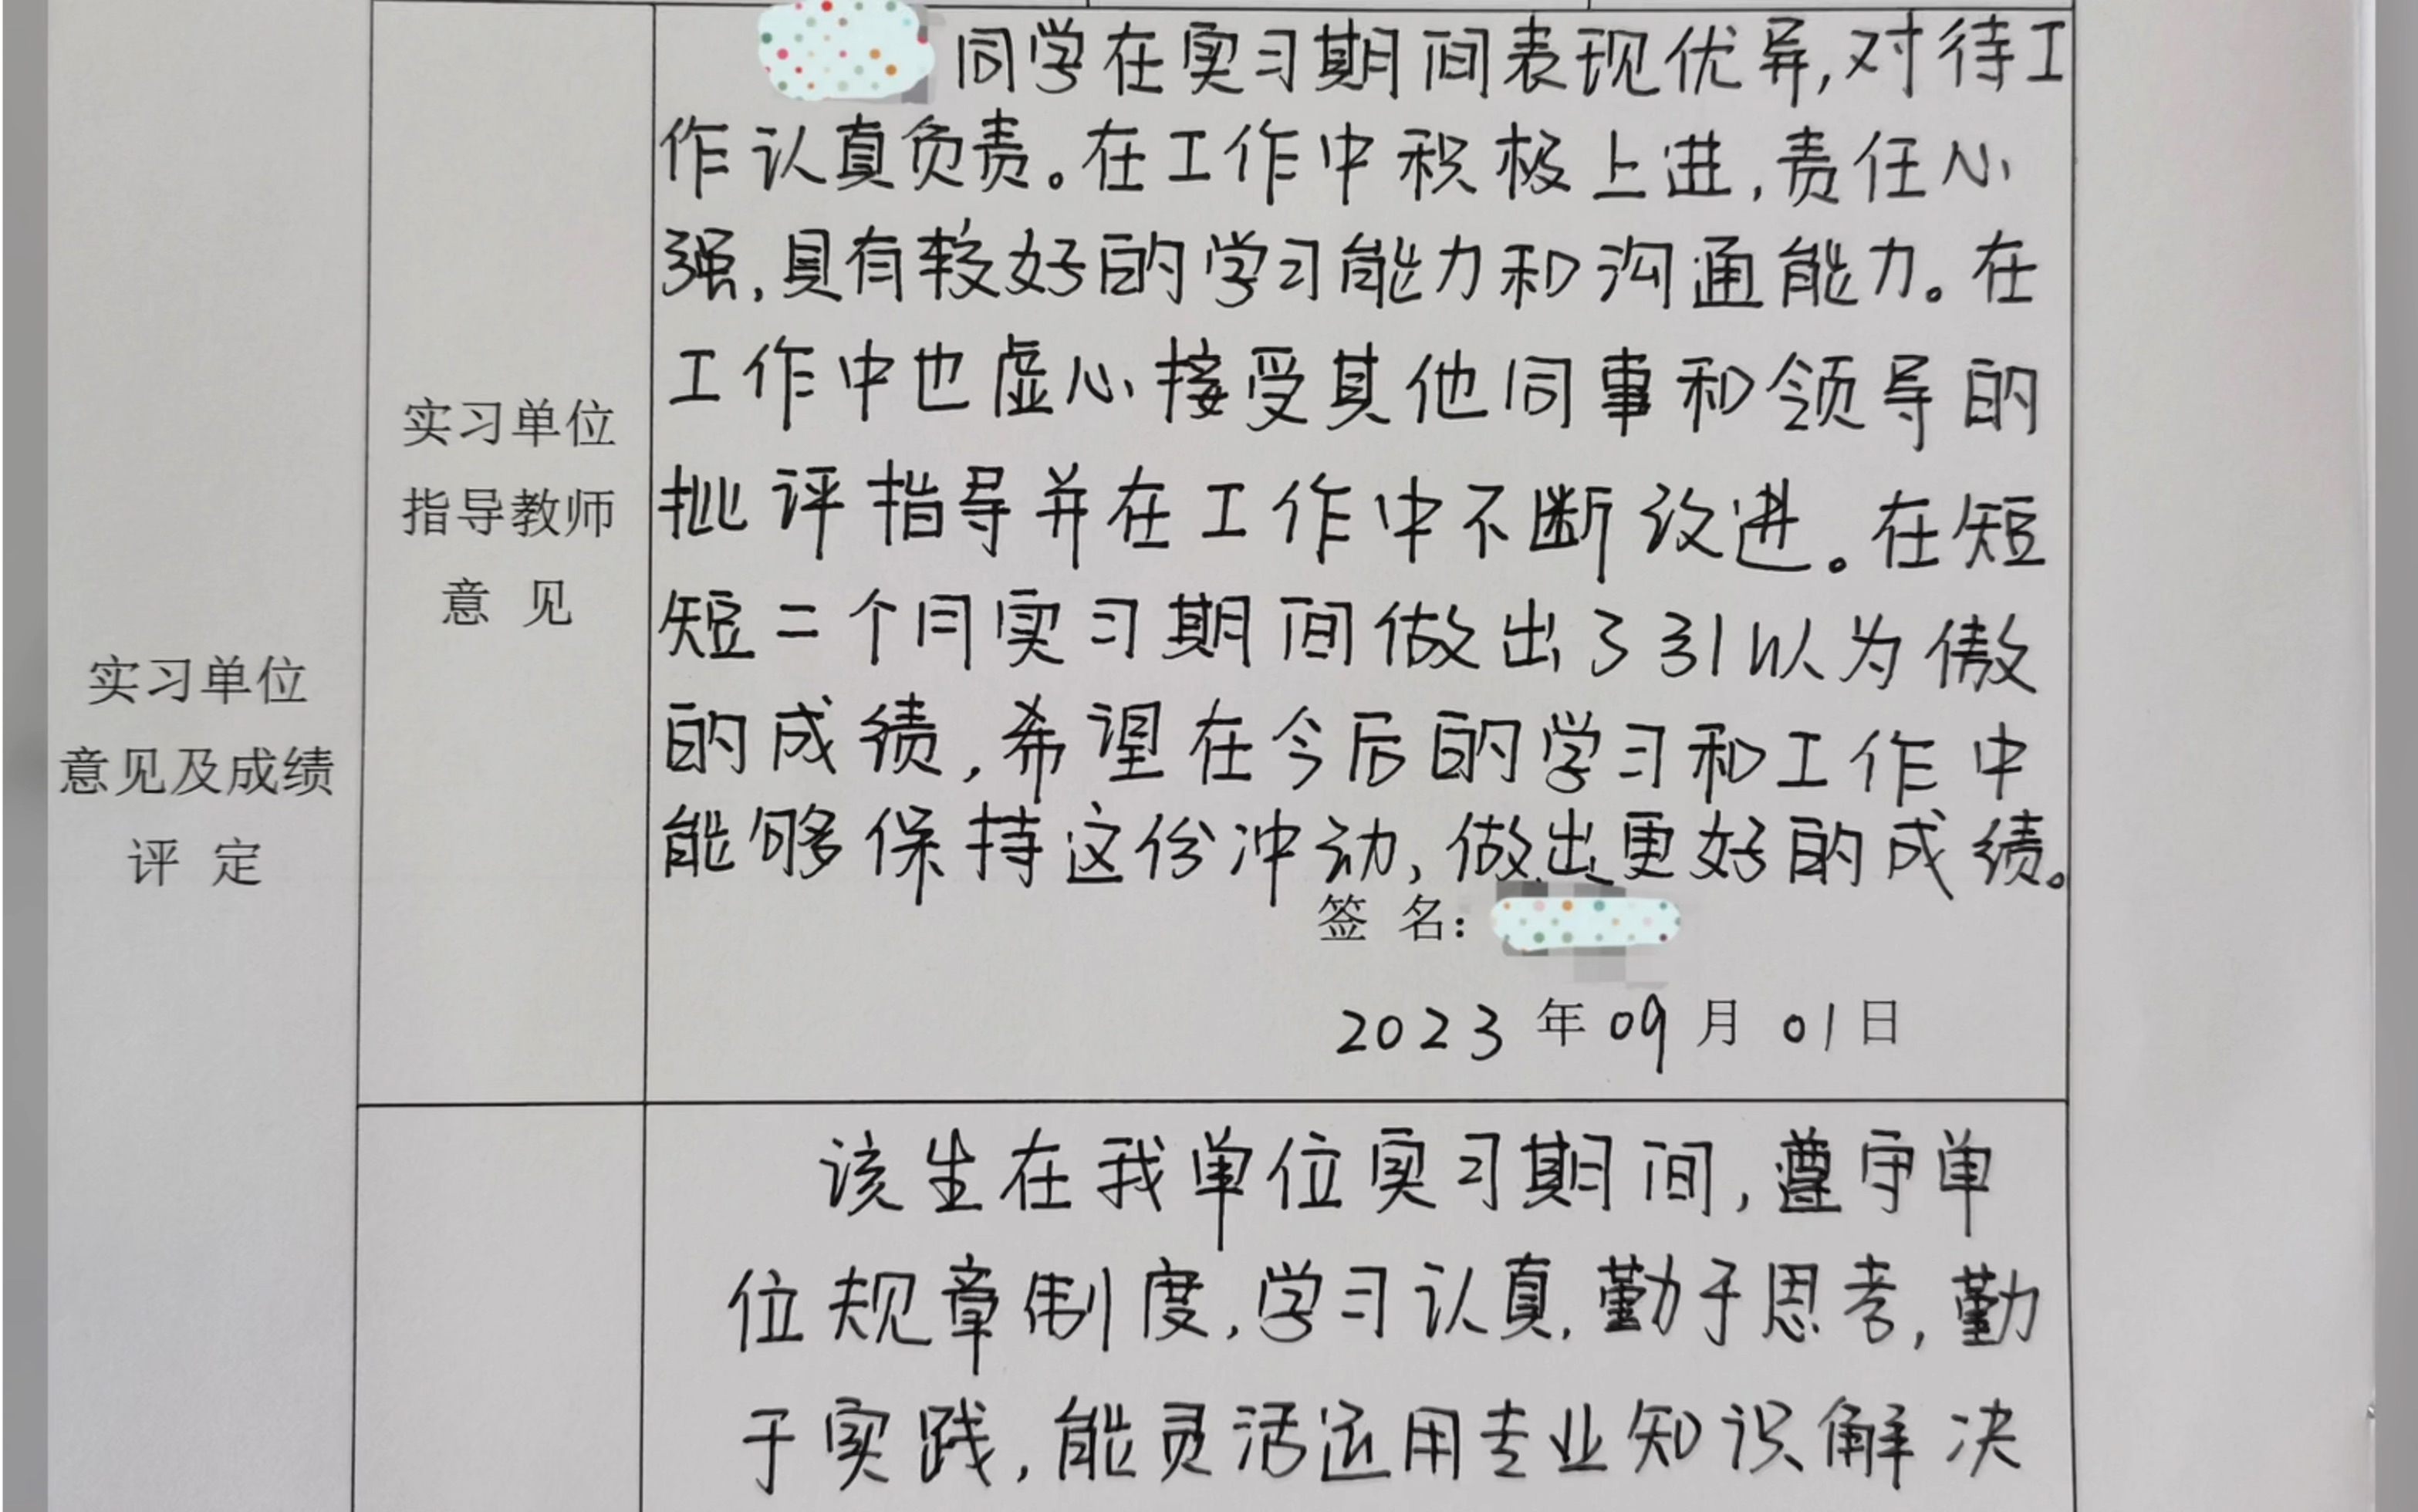 实习单位
意见及成绩
评 定
实习单位
指导教师
意 见
同学在实习期间表现优异,对待工
作认真负责。在工作中积极上进,责任心
强,具有较好的学习能力和沟通能力。在
工作中也虚心接受其他同事和领导的
批评指导并在工作中不断改进。在短
短二个月实习期间做出了引以为傲
的成绩,希望在今后的学习和工作中
能够保持这份冲动,做出更好的成绩。
签 名:
2023 年 09 月 01 日
该生在我单位实习期间,遵守单
位规章制度,学习认真,勤于思考,勤
于实践,能灵活运用专业知识解决